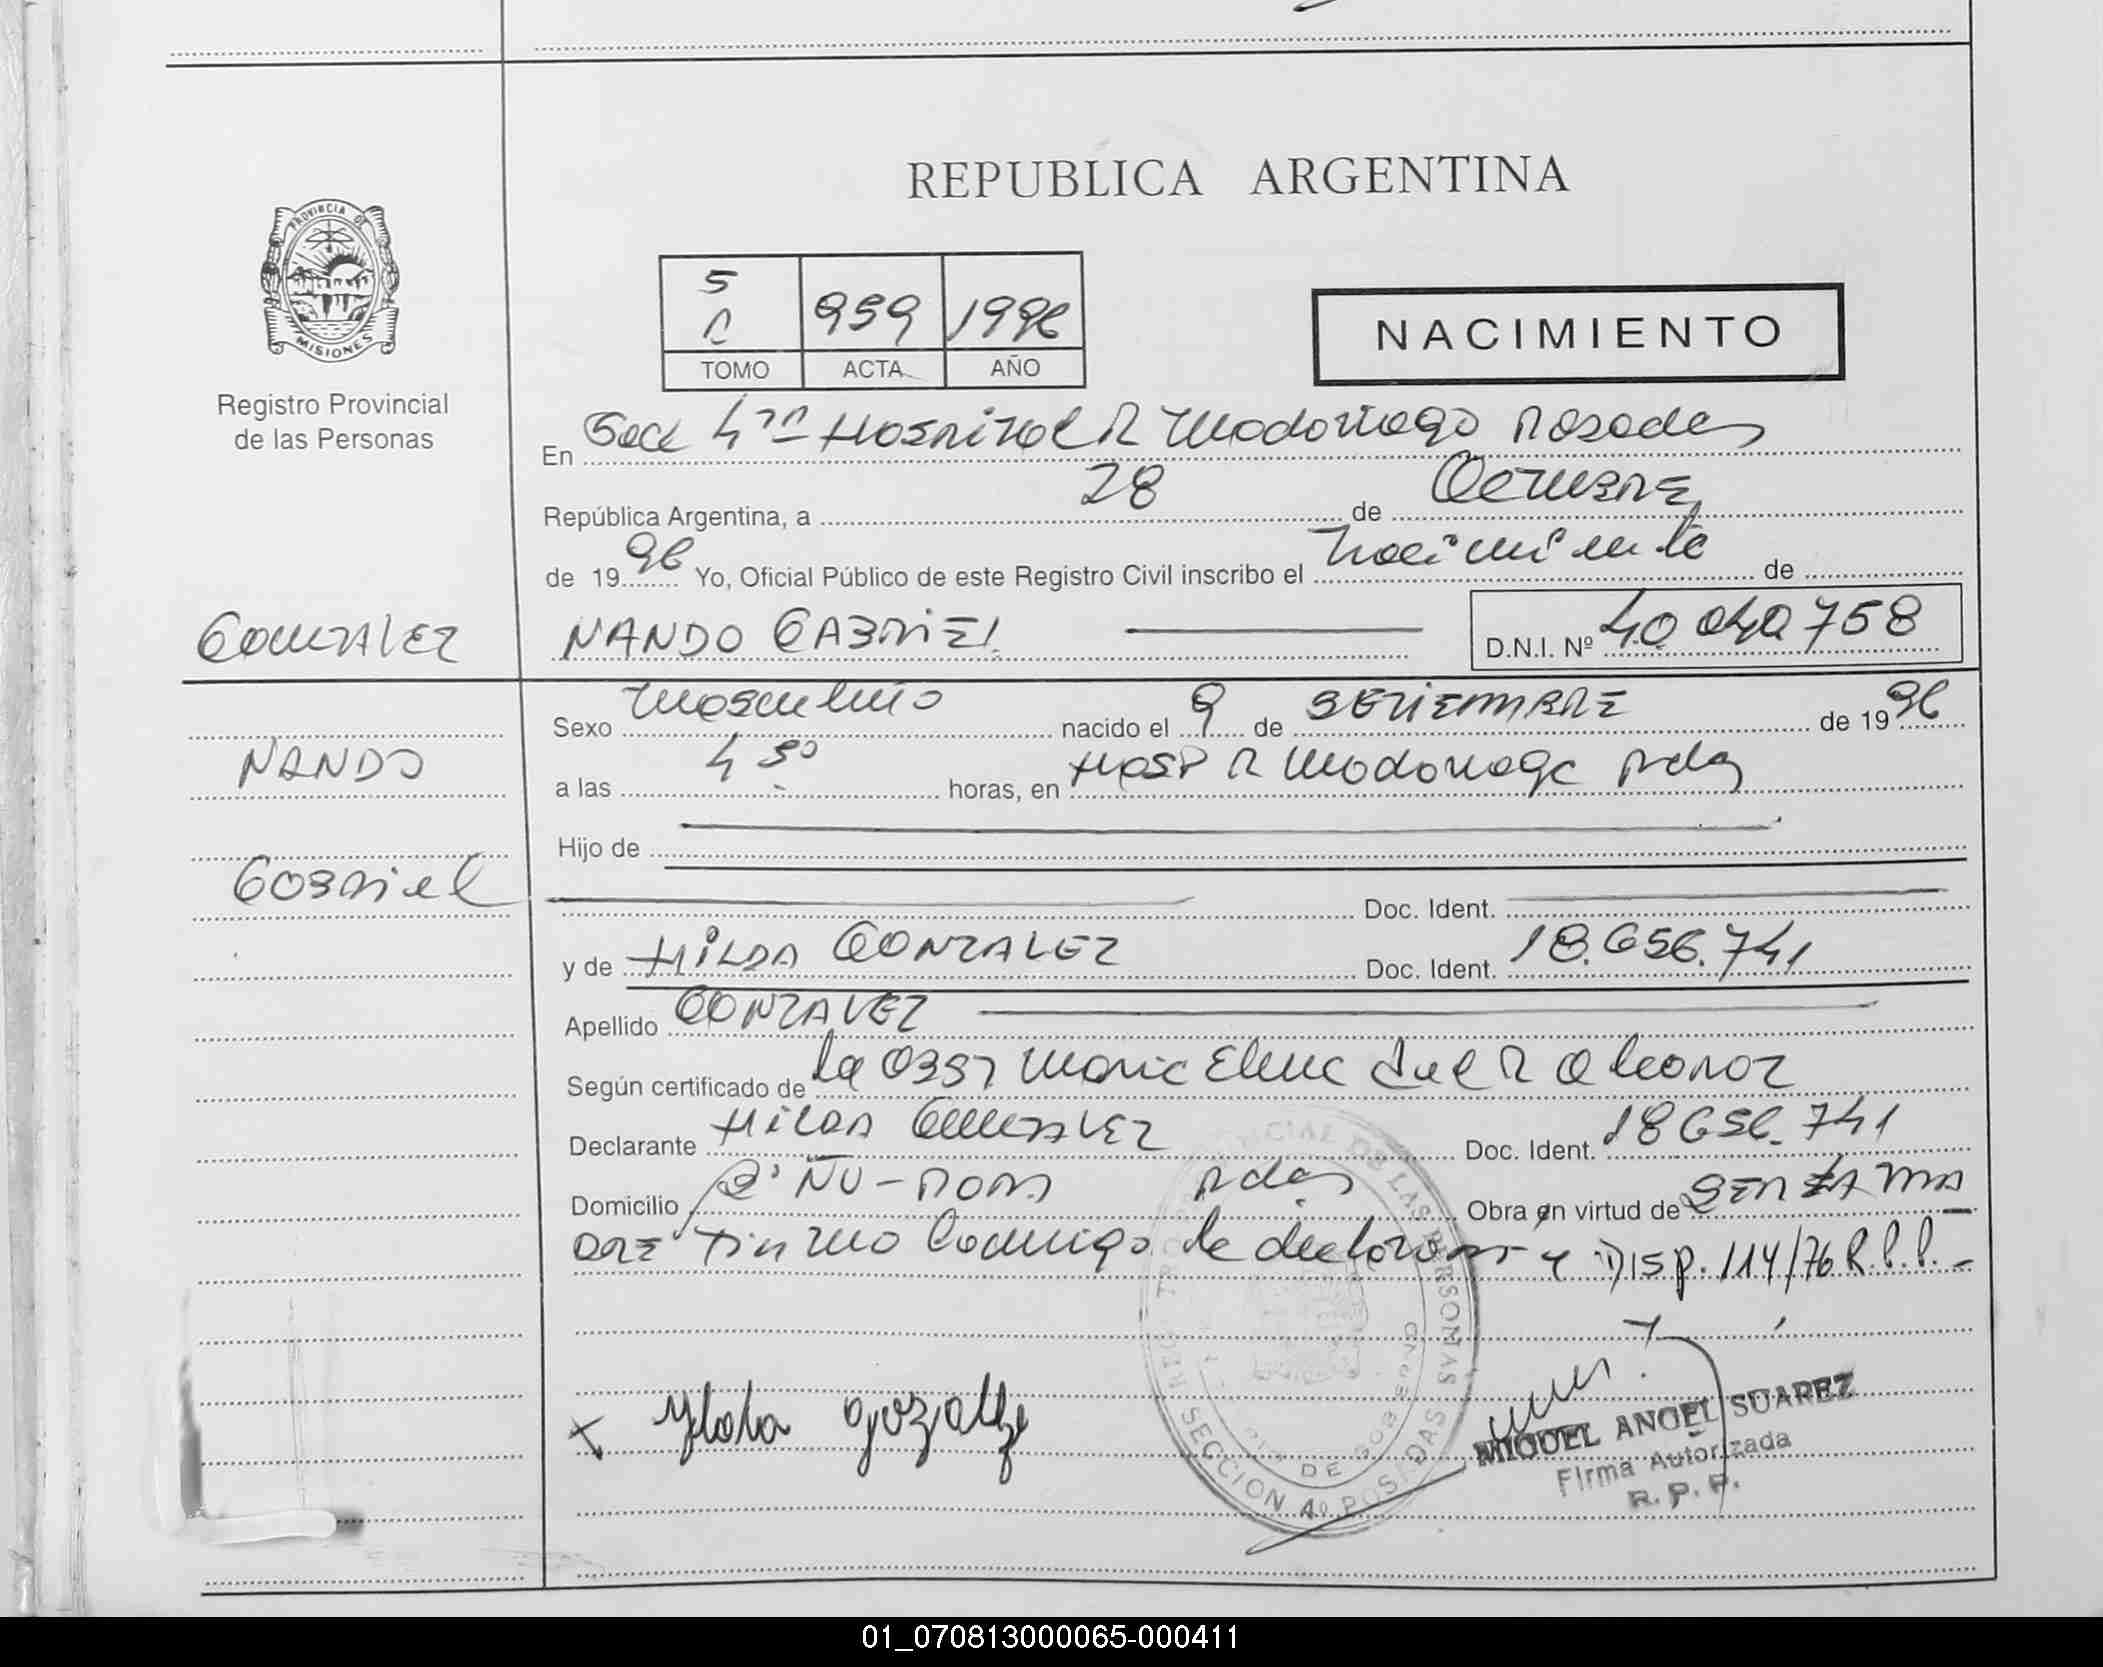 REPUBLICA ARGENTINA
PROVINCIA DE
MISIONES
Registro Provincial
de las Personas
5
C 959 1996
TOMO ACTA AÑO
NACIMIENTO
En Secc 4ta Hospital R Madariaga Posadas
República Argentina, a 28 de Octubre
de 1996 Yo, Oficial Público de este Registro Civil inscribo el Nacimiento de
GONZALEZ NANDO GABRIEL D.N.I. Nº 40.040.758
Sexo Masculino nacido el 9 de SETIEMBRE de 1996
NANDO
a las 4 30 horas, en HOSP R Madariaga Pdas
Hijo de
Gabriel
Doc. Ident.
y de HILDA GONZALEZ Doc. Ident. 18.656.741
Apellido GONZALEZ
Según certificado de la Obst Maria Elena del R
Declarante HILDA GONZALEZ Doc. Ident. 18 656.741
Domicilio Bº ÑU-PORA Pdas Obra en virtud de SER LA MA
DRE Firmo Conmigo la declarante y DISP. 114/76 R.P.P.
REGISTRO PROVINCIAL DE LAS PERSONAS
DE GOBIERNO
SECCION 4º POSADAS
MIGUEL ANGEL SUAREZ
Firma Autorizada
R. P. P.
01_070813000065-000411